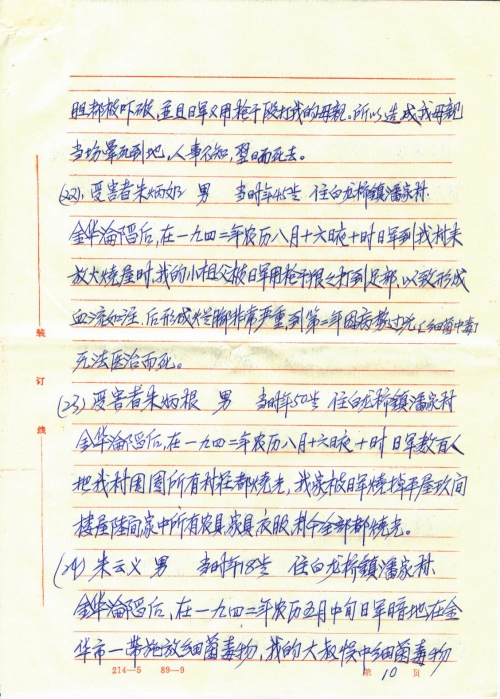 胆都被吓破,并且日军又用枪干殴打我的母亲。所以造成我母亲
当场晕死到地,人事不知,翌日而死去。
(22),受害者朱炳 男 当时年45岁 住白龙桥鎮潘家村
金华淪陷后,在一九四二年农历八月十六日夜十时日军到我村来
放火烧屋时,我的小祖父被日军用枪干狠々打到足部,以致形成
血流如注,后形成烂脚非常严重,到第二年因病势过沉(细菌中毒)
无法医治而死。
(23)受害者朱炳根 男 当时年50岁 住白龙桥鎮潘家村
金华淪陷后,在一九四二年农历八月十六日夜十时日军数百人
地我村团团所有村径都烧光,我家被日军烧掉平屋玖间
楼屋陸间家中所有农具,家具衣服,利今全部都烧光。
(24)朱云义 男 当时年18岁 住白龙桥鎮潘家村
金华淪陷后,在一九四二年农历五月中旬日军暗地在金
华市一带施放细菌毒物,我的大叔悮中细菌毒物
装
订
线
214—5 89—9
第 10 页